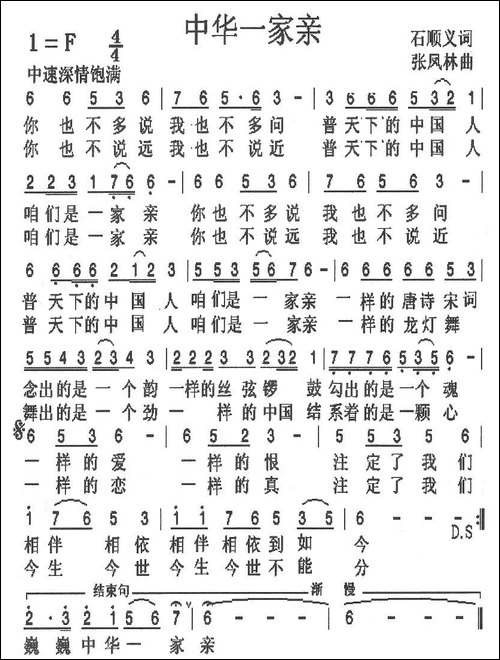 中华一家亲
1=F 4/4
石顺义词
中速深情饱满
张凤林曲
6 6 5 3 6 | 7 6 5·6 3 - | 3 6 6 6 5 3 2 1
你也不多说 我也不多问 普天下的中国人
你也不说远 我也不说近 普天下的中国人
2 2 3 1 7 6 6 - | 6 6 5 3 6 | 7 6 5 6 3 -
咱们是一家亲 你也不多说 我也不多问
咱们是一家亲 你也不说远 我也不说近
6 6 6 6 2 1 2 3 | 5 5 3 5 6 7 6 -
普天下的中国人 咱们是一家亲 一样的唐诗宋词
普天下的中国人 咱们是一家亲 一样的龙灯舞
5 5 4 3 2 3 4 3
念出的是一个韵 一样的丝弦锣鼓 勾出的是一个魂
舞出的是一个劲 一样的中国结 系着的是一颗心
6 5 3 6 -
一样的爱 一样的恨 注定了我们
一样的恋 一样的真 注定了我们
相伴相依 相伴相依到如今
D.S
今生今世 今生今世不能分
结束句 渐慢
巍巍中华一家亲